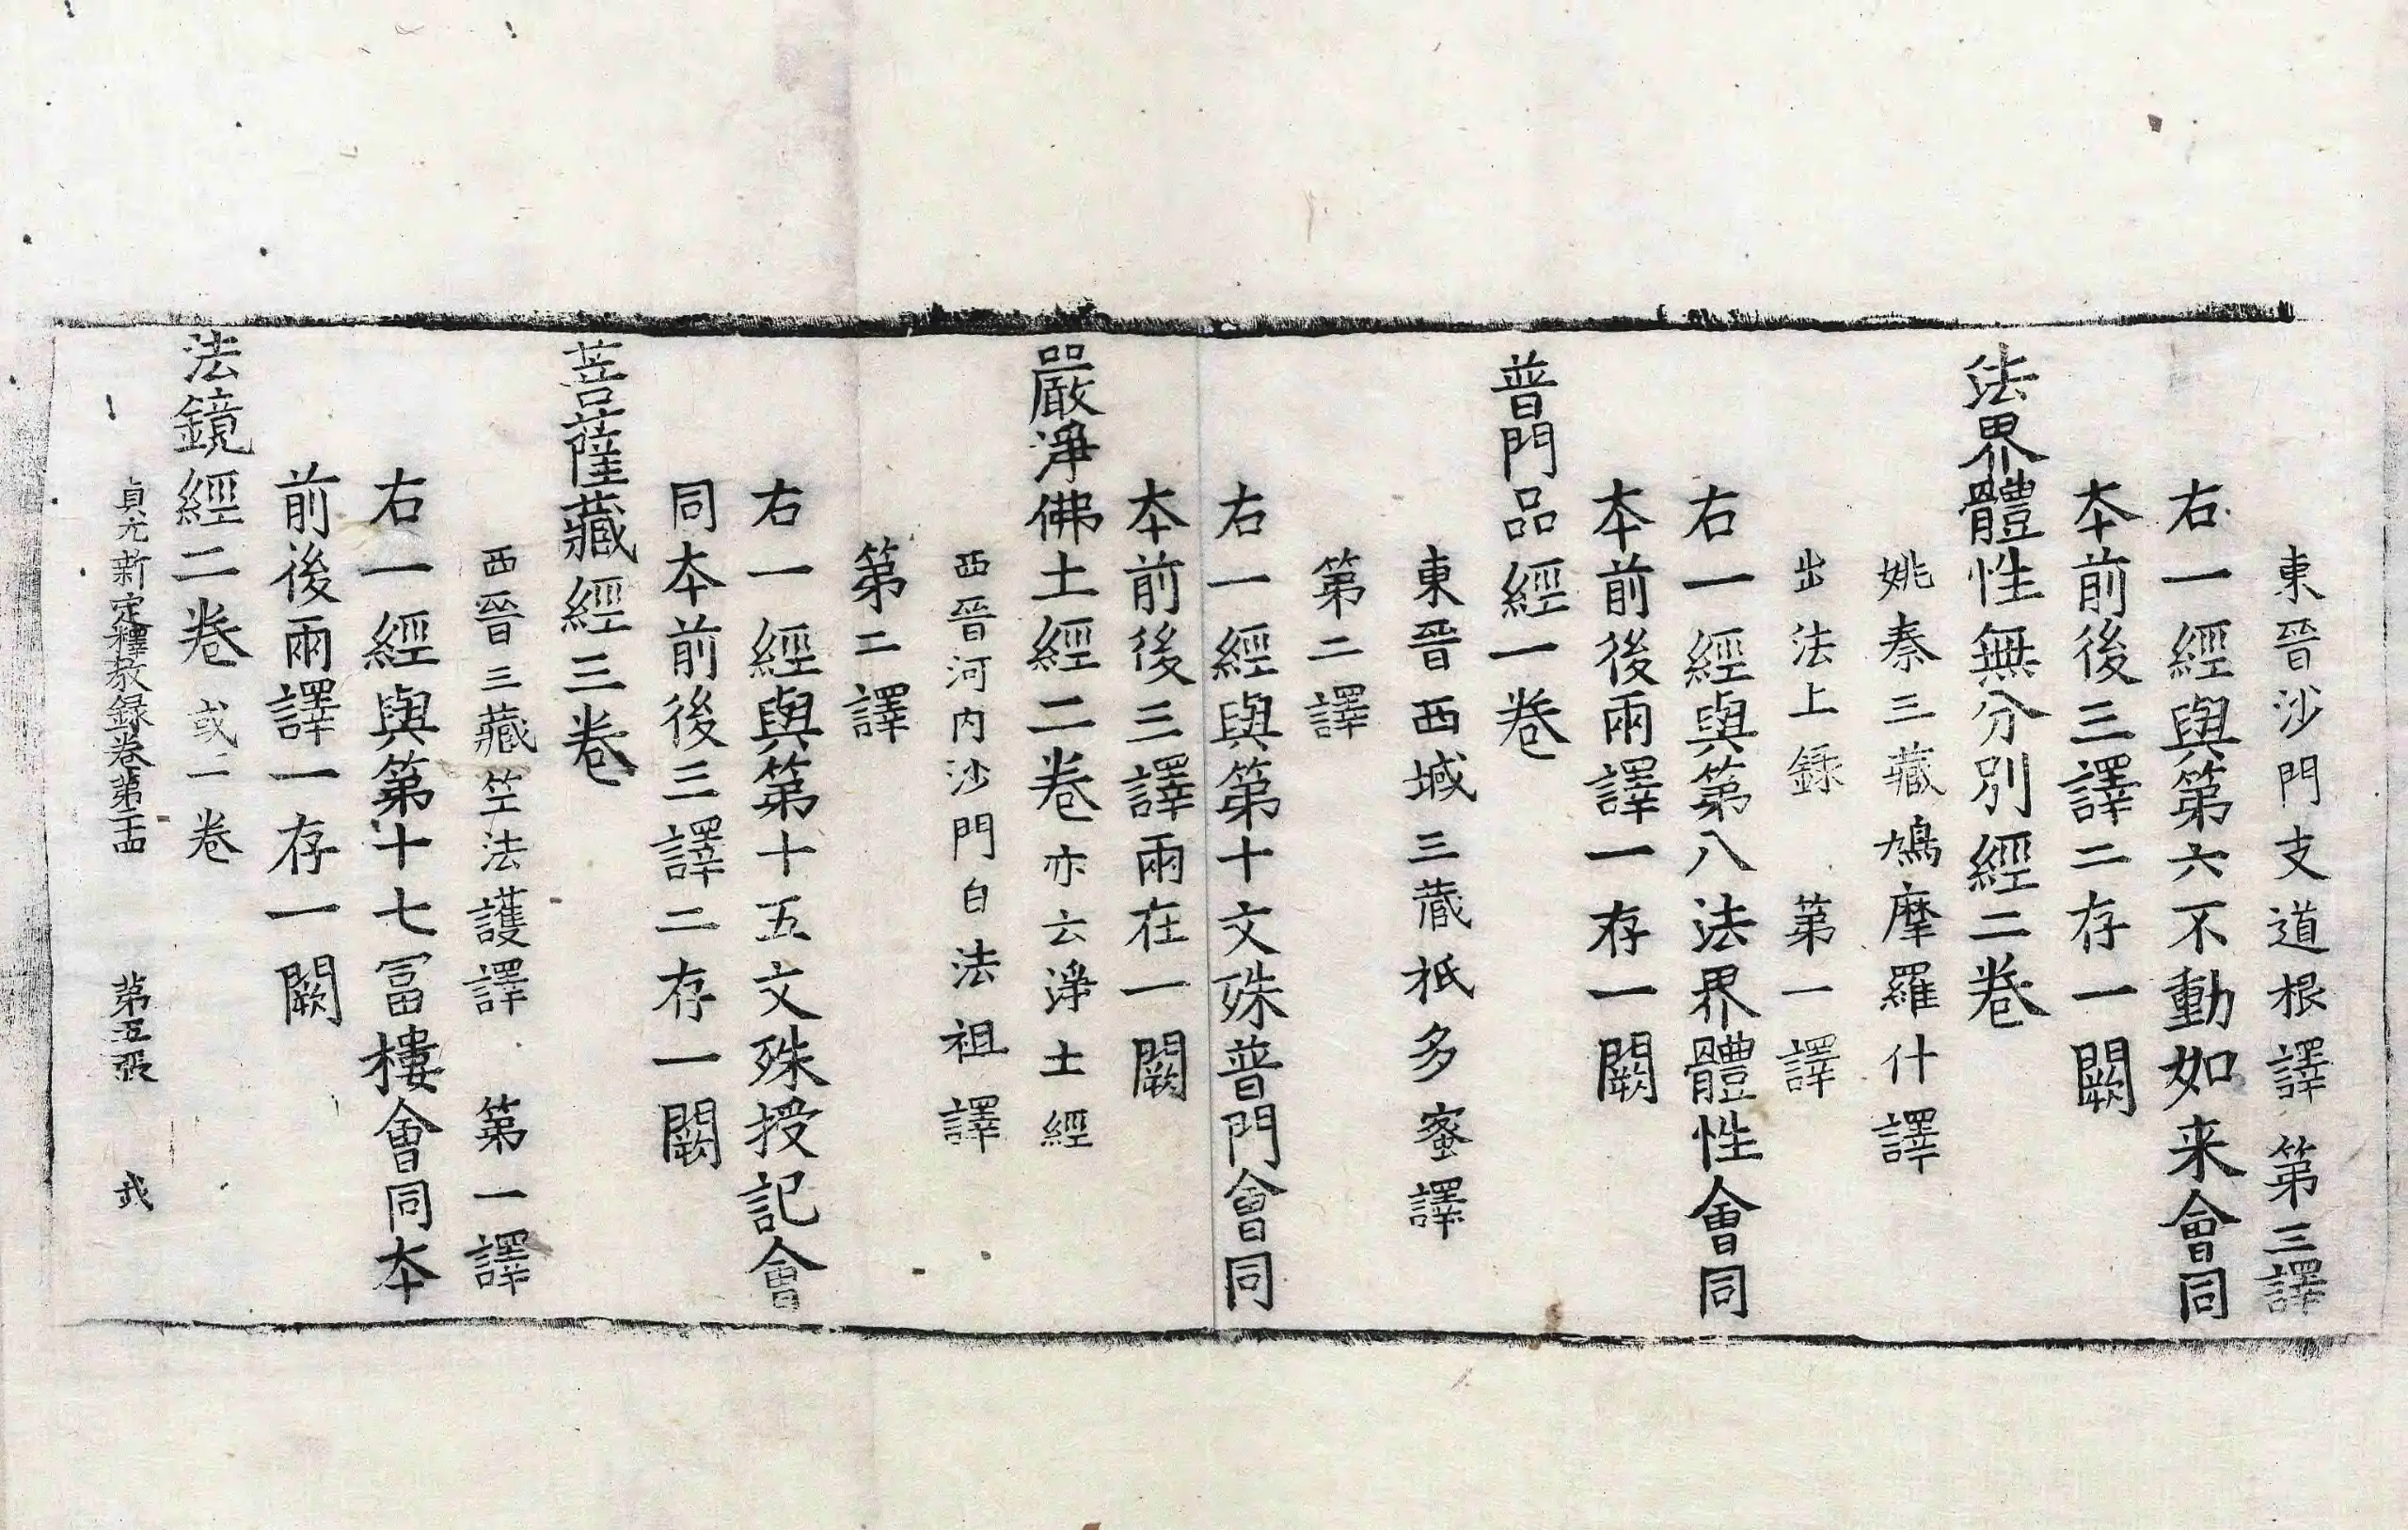 東晉沙門支道根譯第三譯
右一經與第六不動如来會同
本前後三譯二存一闕
法界體性無分別經二卷
姚秦三藏鳩摩羅什譯
出法上録　第一譯
右一經與第八法界體性會同
本前後兩譯一存一闕
普門品經一卷
東晉西域三藏祇多蜜譯
第二譯
右一經與第十文殊普門會同
本前後三譯兩在一闕
嚴淨佛土經二卷亦云淨土經
西晉河内沙門白法祖譯
第二譯
右一經與第十五文殊授記會
同本前後三譯二存一闕
菩薩藏經三卷
西晉三藏竺法護譯　第一譯
右一經與第十七冨樓會同本
前後兩譯一存一闕
法鏡經二卷或一卷
貞元新定釋教録卷第二十四　第五張　弐